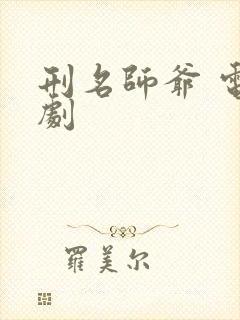 刑名師爺 電
劇
羅美尔